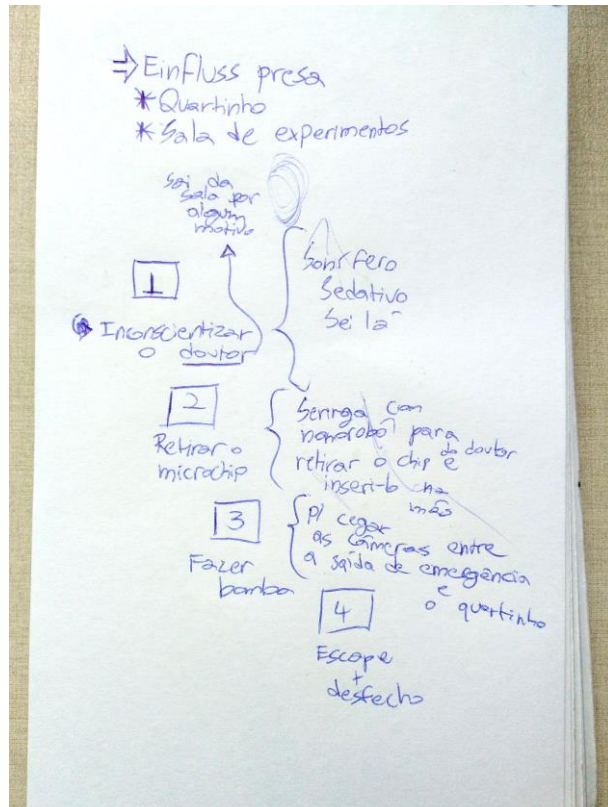 ⇒ Einfluss presa
* Quartinho
* Sala de experimentos
Sai da
sala por
algum
motivo
1
Inconscientizar
o doutor
Sonífero
Sedativo
Sei lá
2
Retirar o
microchip
Seringa com
nanorobô para
retirar o chip do doutor
e
inseri-lo na
mão
3
Fazer
bomba
p/ cegar
as câmeras entre
a saída de emergência
e
o quartinho
4
Escape
+
desfecho